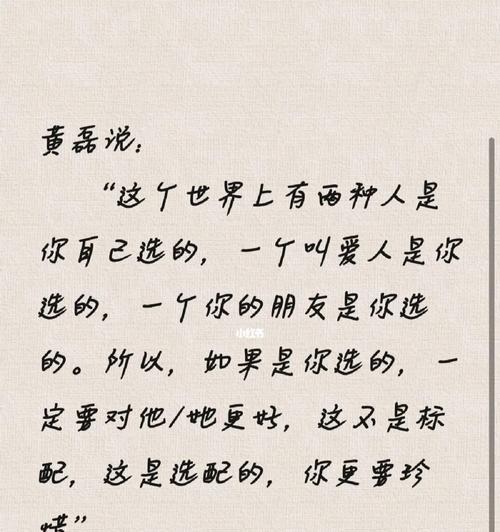 黄磊说：
“这个世界上有两种人是
你自己选的，一个叫爱人是你
选的，一个你的朋友是你选
小红书
的。所以，如果是你选的，一
定要对他/她更好，这不是标
配，这是选配的，你更要珍
惜”